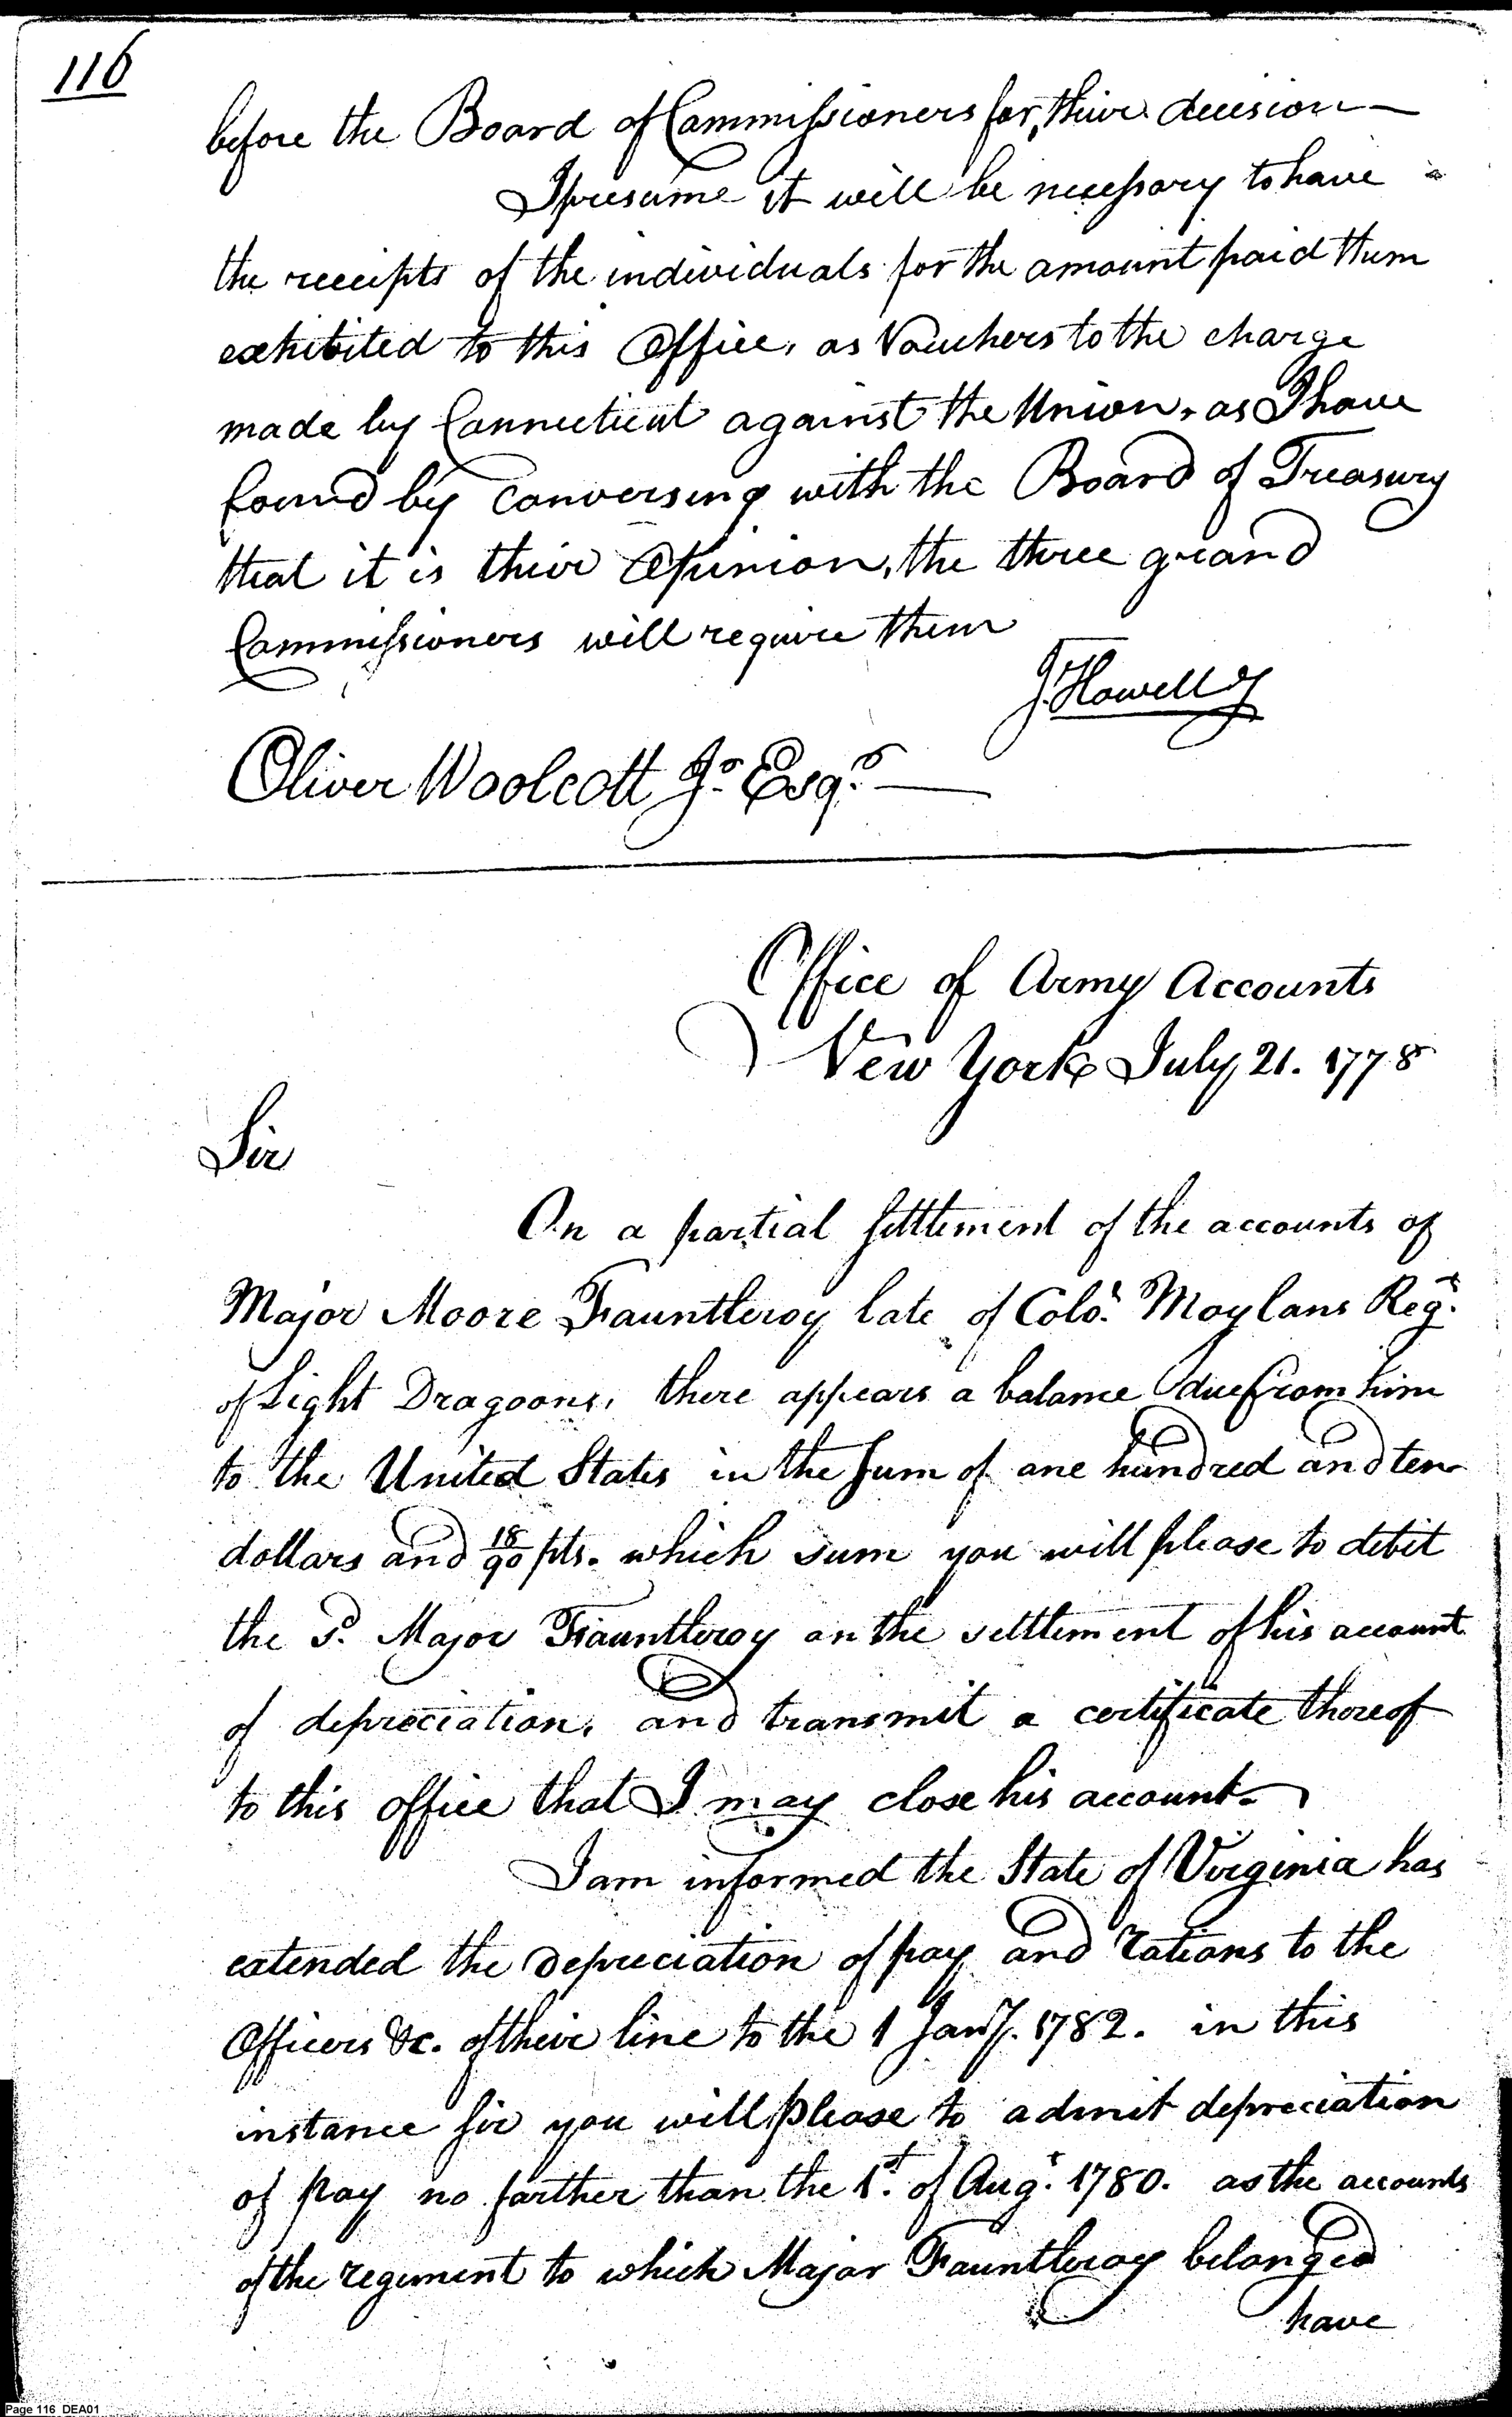 116
before the Board of Commissioners for, their decision —
I presume it will be necessary to have
the receipts of the individuals for the amount paid them
exhibited to this Office, as Vouchers to the charge
made by Connecticut against the Union, as I have
found by conversing with the Board of Treasury
that it is their Opinion, the three grand
Commissioners will require them
J. Howell Jr
Oliver Woolcott Jr. Esqr. —
Office of Army Accounts
New York July 21. 1778
Sir
On a partial settlement of the accounts of
Major Moore Fauntleroy late of Colo. Moylans Regt.
of Light Dragoons, there appears a balance due from him
to the United States in the Sum of one hundred and ten
dollars and 18/90 pts. which sum you will please to debit
the sd. Major Fauntleroy on the settlement of his account
of depreciation, and transmit a certificate thereof
to this office that I may close his account.
I am informed the State of Virginia has
extended the depreciation of pay and rations to the
Officers &c. of their line to the 1 Jany. 1782. in this
instance sir you will please to admit depreciation
of pay no farther than the 1st. of Augt. 1780. as the accounts
of the regiment to which Major Fauntleroy belonged
have
Page 116 DEA01